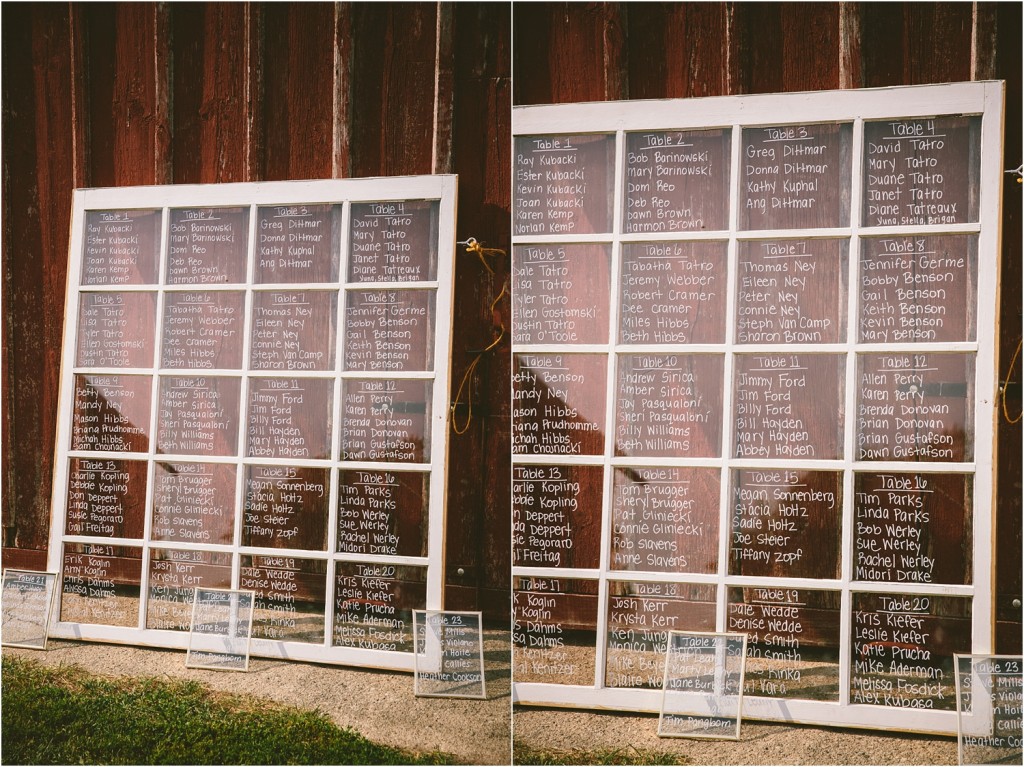 Table 1
Ray Kubacki
Ester Kubacki
Kevin Kubacki
Joan Kubacki
Karen Kemp
Norlan Kemp
Table 2
Bob Barinowski
Mary Barinowski
Dom Reo
Deb Reo
Dawn Brown
Harmon Brown
Table 3
Greg Dittmar
Donna Dittmar
Kathy Kuphal
Ang Dittmar
Table 4
David Tatro
Mary Tatro
Duane Tatro
Janet Tatro
Diane Tatreaux
Yuna, Stella, Brigan
Table 5
Dale Tatro
Lisa Tatro
Tyler Tatro
Ellen Gostomski
Dustin Tatro
Sara O'Toole
Table 6
Tabatha Tatro
Jeremy Webber
Robert Cramer
Dee Cramer
Miles Hibbs
Beth Hibbs
Table 7
Thomas Ney
Eileen Ney
Peter Ney
Connie Ney
Steph Van Camp
Sharon Brown
Table 8
Jennifer Germe
Bobby Benson
Gail Benson
Keith Benson
Kevin Benson
Mary Benson
Table 9
Betty Benson
Mandy Ney
Mason Hibbs
Briana Prudhomme
Michah Hibbs
Sam Chojnacki
Table 10
Andrew Sirica
Amber Sirica
Jay Pasqualoni
Sheri Pasqualoni
Billy Williams
Beth Williams
Table 11
Jimmy Ford
Jim Ford
Billy Ford
Bill Hayden
Mary Hayden
Abbey Hayden
Table 12
Allen Perry
Karen Perry
Brenda Donovan
Brian Donovan
Brian Gustafson
Dawn Gustafson
Table 13
Charlie Kopling
Debbie Kopling
Don Deppert
Linda Deppert
Susie Pegoraro
Gail Freitag
Table 14
Tom Brugger
Sheryl Brugger
Pat Gliniecki
Connie Gliniecki
Rob Slavens
Anne Slavens
Table 15
Megan Sonnenberg
Stacia Holtz
Sadie Holtz
Joe Steier
Tiffany Zopf
Table 16
Tim Parks
Linda Parks
Bob Werley
Sue Werley
Rachel Werley
Midori Drake
Table 17
Erik Koglin
Amy Koglin
Chris Dahms
Alyssa Dahms
Table 18
Josh Kerr
Krysta Kerr
Ken Jung
Table 19
Dale Wedde
Denise Wedde
Smith
Sarah Smith
Table 20
Kris Kiefer
Leslie Kiefer
Katie Prucha
Mike Aderman
Melissa Fosdick
Alex Kubasa
Table 21
Table 22
Jane
Tim Pongborn
Table 23
Mills
Heather Cookson